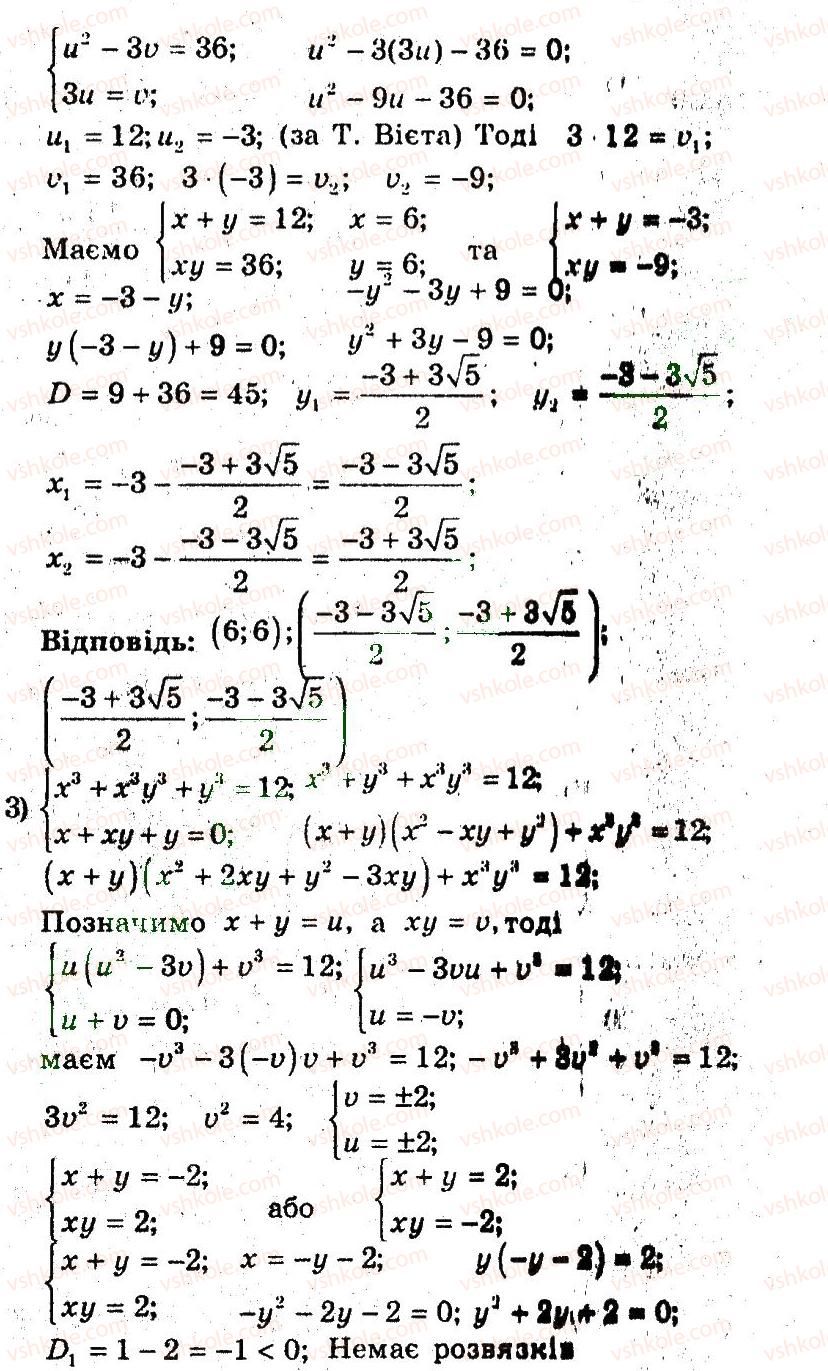 {u² − 3v = 36;  u² − 3(3u) − 36 = 0;
{3u = v;  u² − 9u − 36 = 0;
u₁ = 12; u₂ = −3; (за Т. Вієта) Тоді 3 · 12 = v₁;
v₁ = 36; 3 · (−3) = v₂; v₂ = −9;
Маємо {x + y = 12; xy = 36; x = 6; y = 6; та {x + y = −3; xy = −9;
x = −3 − y; −y² − 3y + 9 = 0;
y(−3 − y) + 9 = 0; y² + 3y − 9 = 0;
D = 9 + 36 = 45; y₁ = (−3 + 3√5)/2; y₂ = (−3 − 3√5)/2;
x₁ = −3 − (−3 + 3√5)/2 = (−3 − 3√5)/2;
x₂ = −3 − (−3 − 3√5)/2 = (−3 + 3√5)/2;
Відповідь: (6; 6); ((−3 − 3√5)/2; (−3 + 3√5)/2);
((−3 + 3√5)/2; (−3 − 3√5)/2)
3) {x³ + x³y³ + y³ = 12; x³ + y³ + x³y³ = 12;
{x + xy + y = 0; (x + y)(x² − xy + y²) + x³y³ = 12;
(x + y)(x² + 2xy + y² − 3xy) + x³y³ = 12;
Позначимо x + y = u, а xy = v, тоді
{u(u² − 3v) + v³ = 12; {u³ − 3vu + v³ = 12;
{u + v = 0; {u = −v;
маєм −v³ − 3(−v)v + v³ = 12; −v³ + 3v² + v³ = 12;
3v² = 12; v² = 4; {v = ±2; u = ±2;
{x + y = −2; xy = 2; або {x + y = 2; xy = −2;
{x + y = −2; x = −y − 2; y(−y − 2) = 2;
{xy = 2; −y² − 2y − 2 = 0; y² + 2y + 2 = 0;
D₁ = 1 − 2 = −1 < 0; Немає розвязків